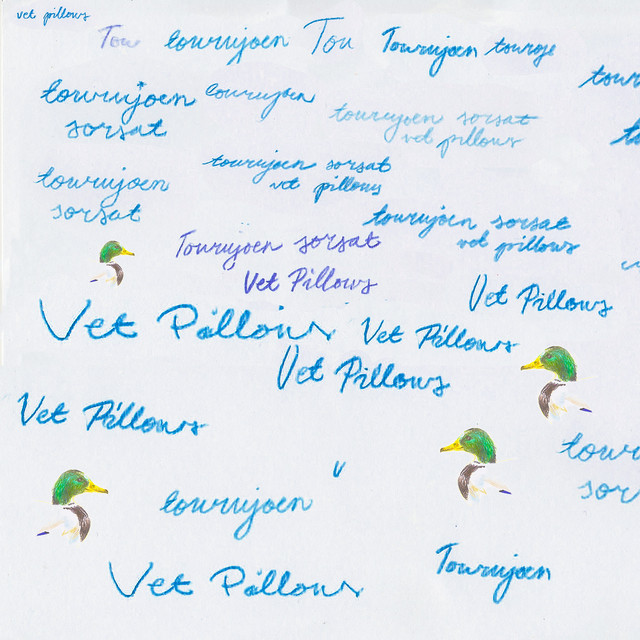 vet pillows
Tou tourujoen Tou Tourujoen touroje
tour
tourujoen tourujoen
sorsat
tourujoen sorsat
vet pillows
tourujoen sorsat
vet pillows
tourujoen
sorsat
tourujoen sorsat
vet pillows
Tourujoen sorsat
Vet Pillows
Vet Pillows
Vet Pillows Vet Pillows
Vet Pillows
Vet Pillows
tour
sor
v
tourujoen
Tourujoen
Vet Pillows